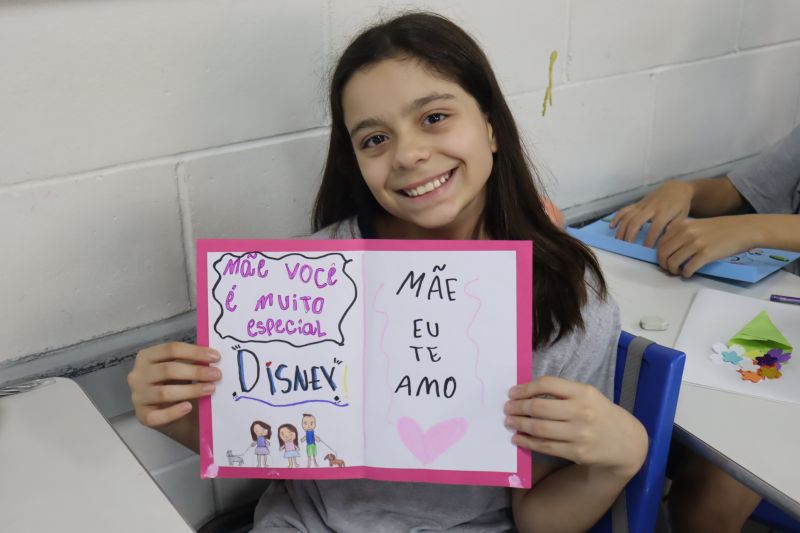 MÃE VOCÊ
É MUITO
ESPECIAL
"DISNEY"!
MÃE
EU
TE
AMO